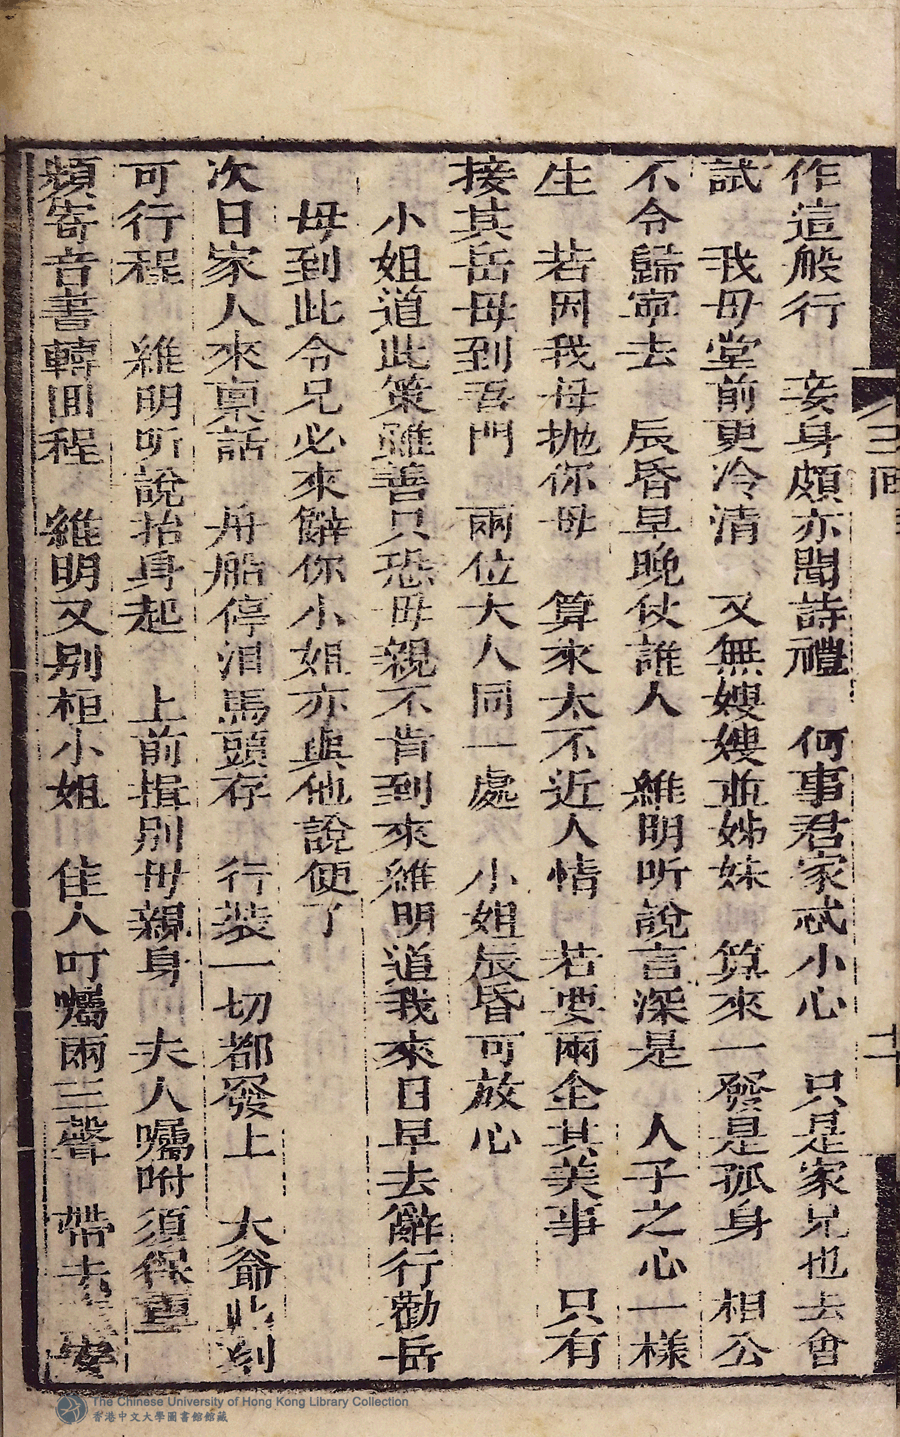 作這般行　妾身頗亦聞詩禮　何事君家忒小心　只是家兄也去會
試　我毋堂前更冷清　又無嫂嫂並姊妹　算來一發是孤身　相公
不令歸寧去　辰昏早晚伏誰人　維明听說言深是　人子之心一樣
生　若因我母抛你母　算來太不近人情　若要兩全其美事　只有
接其岳母到吾門　兩位大人同一處　小姐辰昏可放心
小姐道此策雖善只恐毋親不肯到來維明道我來日早去辭行勸岳
毋到此令兄必來辭你小姐亦與他說便了
次日家人來禀話　舟船停泪馬頭存　行裝一切都發上　大爺此刻
可行程　維明听說抬身起　上前揖别毋親身　夫人囑咐須保重
頻寄音書轉囬程　維明又别桓小姐　佳人叮囑兩三聲　帶去安
三囬
十
The Chinese University of Hong Kong Library Collection
香港中文大學圖書館館藏